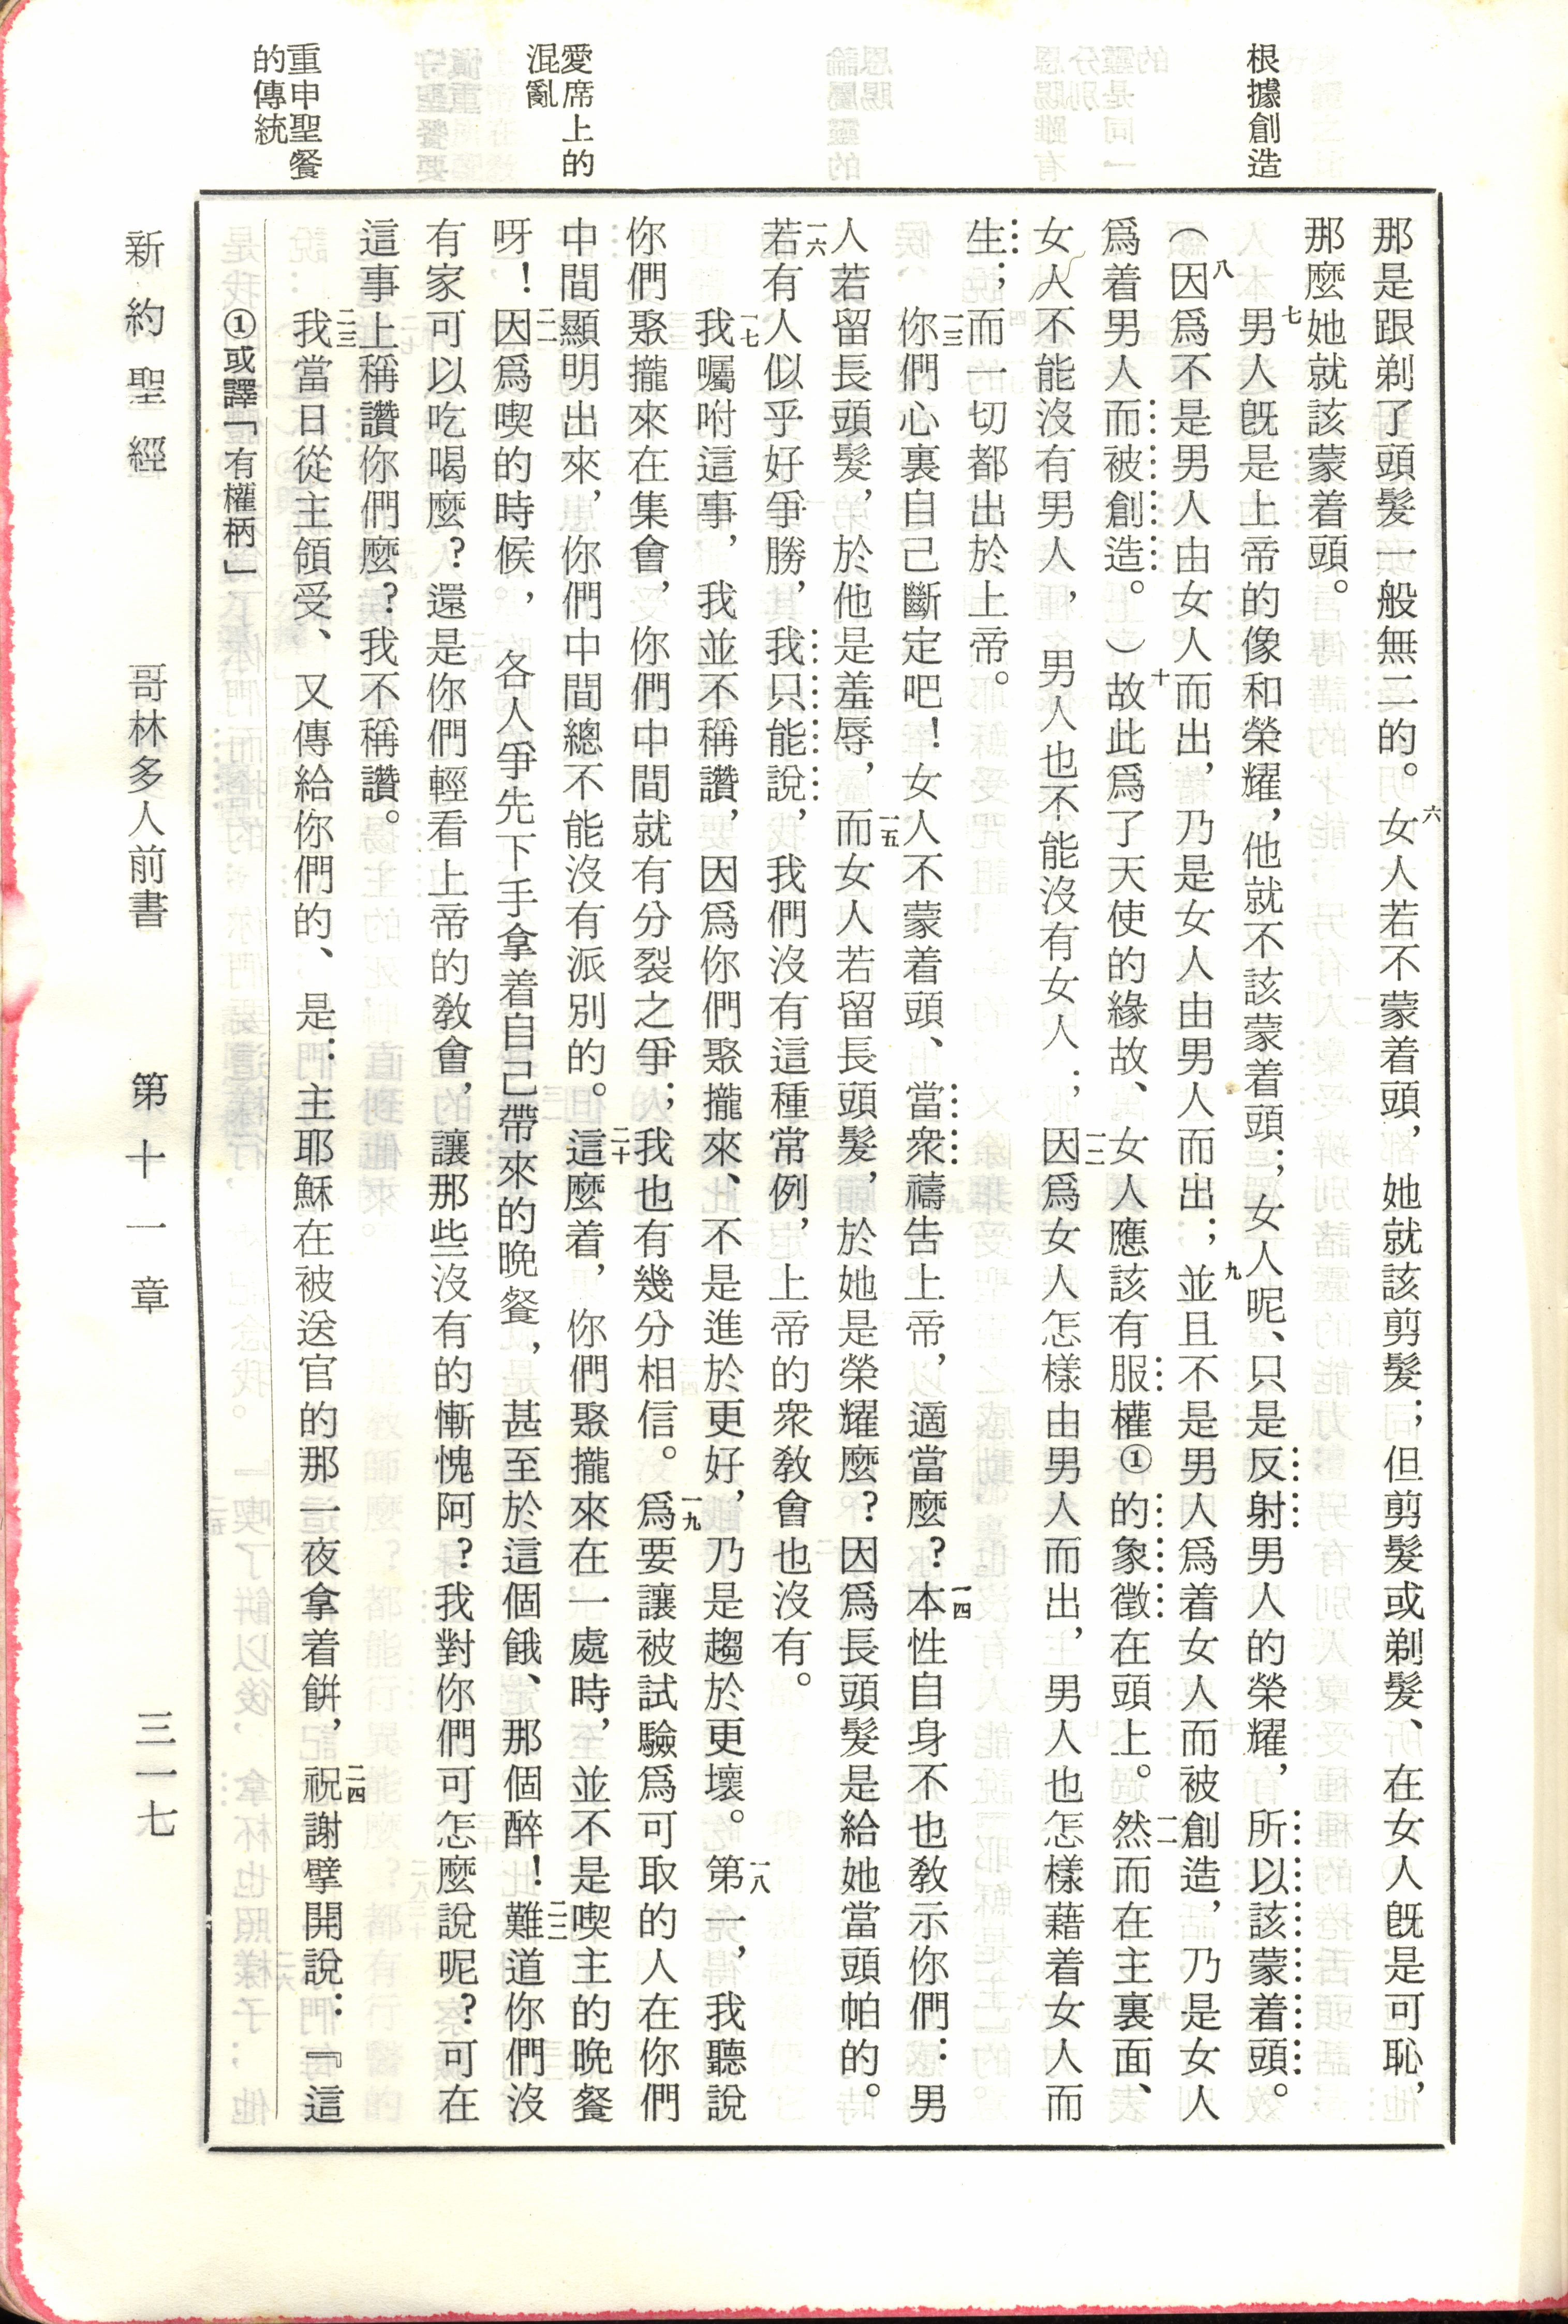 根據創造
愛席上的
混亂
重申聖餐
的傳統
那是跟剃了頭髮一般無二的。六女人若不蒙着頭，她就該剪髮；但剪髮或剃髮、在女人旣是可恥，
那麼她就該蒙着頭。
七男人旣是上帝的像和榮耀，他就不該蒙着頭；女人呢、只是反射男人的榮耀，所以該蒙着頭。
（八因爲不是男人由女人而出，乃是女人由男人而出；九並且不是男人爲着女人而被創造，乃是女人
爲着男人而被創造。）十故此爲了天使的緣故、女人應該有服權①的象徵在頭上。一一然而在主裏面、
女人不能沒有男人，男人也不能沒有女人；一二因爲女人怎樣由男人而出，男人也怎樣藉着女人而
生；而一切都出於上帝。
一三你們心裏自己斷定吧！女人不蒙着頭、當衆禱告上帝，適當麼？一四本性自身不也教示你們：男
人若留長頭髮，於他是羞辱，一五而女人若留長頭髮，於她是榮耀麼？因爲長頭髮是給她當頭帕的。
一六若有人似乎好爭勝，我只能說，我們沒有這種常例，上帝的衆教會也沒有。
一七我囑咐這事，我並不稱讚，因爲你們聚攏來、不是進於更好，乃是趨於更壞。一八第一，我聽說
你們聚攏來在集會，你們中間就有分裂之爭；我也有幾分相信。一九爲要讓被試驗爲可取的人在你們
中間顯明出來，你們中間總不能沒有派別的。二十這麼着，你們聚攏來在一處時，並不是喫主的晚餐
呀！二一因爲喫的時候，各人爭先下手拿着自己帶來的晚餐，甚至於這個餓、那個醉！二二難道你們沒
有家可以吃喝麼？還是你們輕看上帝的敎會，讓那些沒有的慚愧阿？我對你們可怎麼說呢？可在
這事上稱讚你們麼？我不稱讚。
二三我當日從主領受、又傳給你們的、是：主耶穌在被送官的那一夜拿着餅，二四祝謝擘開說：『這
①或譯「有權柄」
新約聖經 哥林多人前書 第十一章 三一七